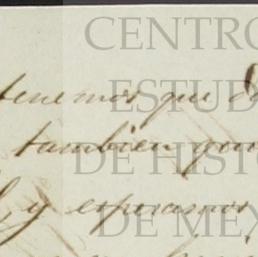 CENTRO
ESTUD
DE HISTO
DE MEX
tenemos que
tambien
y esperamos